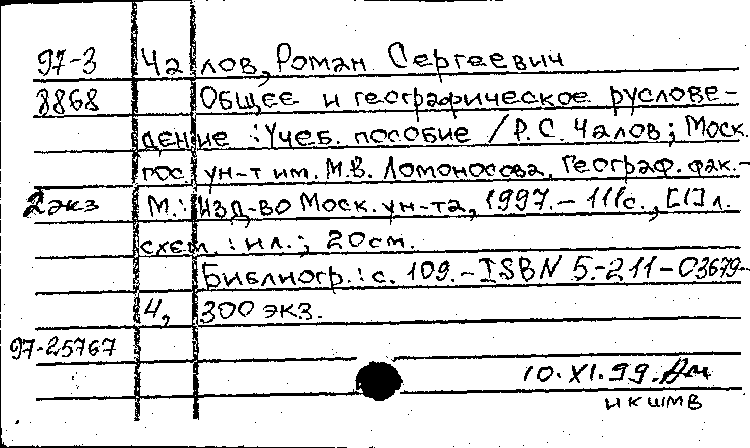 97-3 Чалов, Роман Сергеевич
8868 Общее и географическое руслове-
дение : Учеб. пособие / Р.С. Чалов; Моск.
гос ун-т им. М.В. Ломоносова. Географ. фак.-
2экз М.: Изд-во Моск. ун-та, 1997.- 111с., [1]л.
схем. : ил.; 20см.
Библиогр.: с. 109.-ISBN 5-211-03679-
4, 300 экз.
97-25767
10.XI.99.
НКШМВ